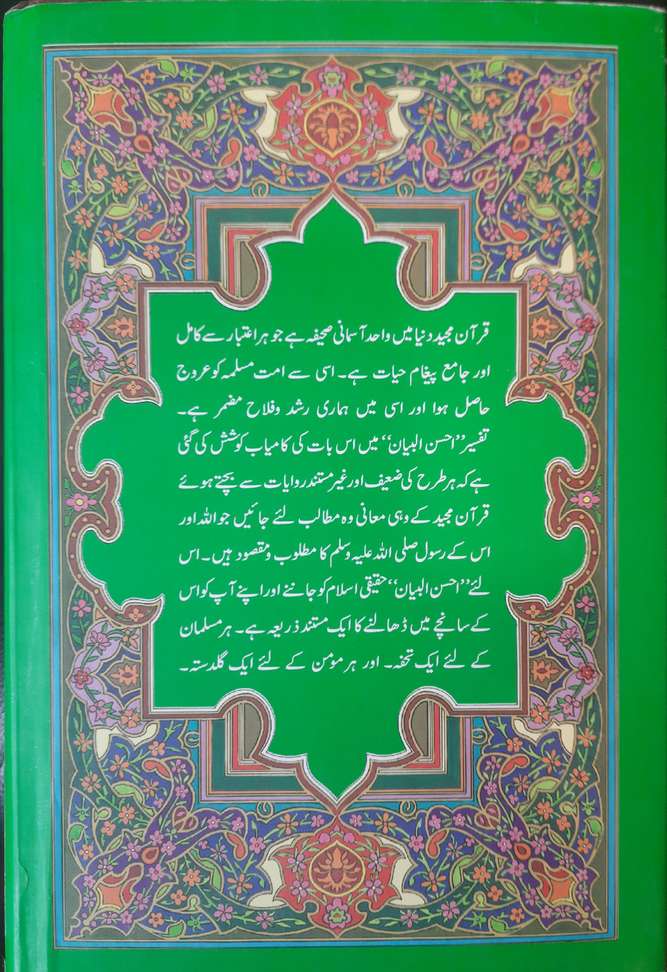 قرآن مجید دنیا میں واحد آسمانی صحیفہ ہے جو ہر اعتبار سے کامل
اور جامع پیغام حیات ہے۔ اسی سے امت مسلمہ کو عروج
حاصل ہوا اور اسی میں ہماری رشد وفلاح مضمر ہے۔
تفسیر ''احسن البیان'' میں اس بات کی کامیاب کوشش کی گئی
ہے کہ ہر طرح کی ضعیف اور غیر مستند روایات سے بچتے ہوئے
قرآن مجید کے وہی معانی وہ مطالب لئے جائیں جو اللہ اور
اس کے رسول صلی اللہ علیہ وسلم کا مطلوب ومقصود ہیں۔ اس
لئے ''احسن البیان'' حقیقی اسلام کو جاننے اور اپنے آپ کو اس
کے سانچے میں ڈھالنے کا ایک مستند ذریعہ ہے۔ ہر مسلمان
کے لئے ایک تحفہ۔ اور ہر مؤمن کے لئے ایک گلدستہ۔